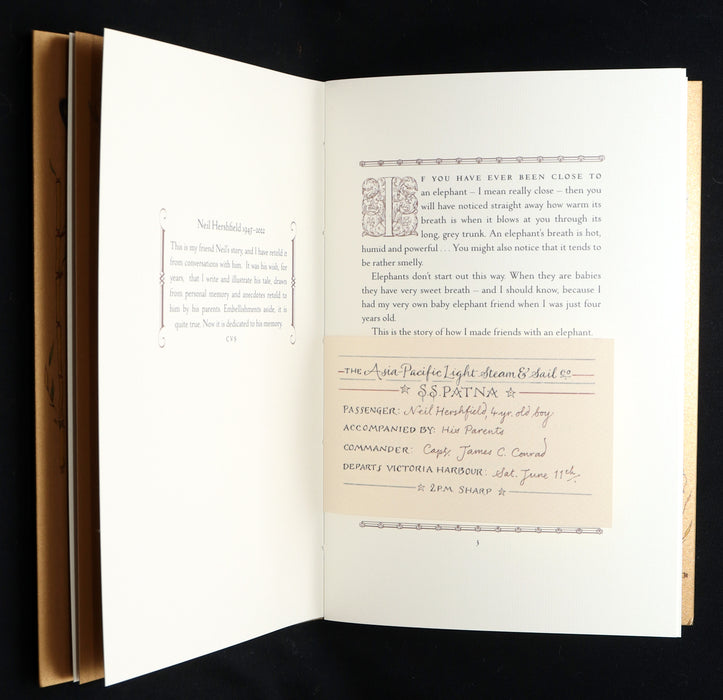 Neil Hershfield 1947–2022
This is my friend Neil's story, and I have retold it
from conversations with him. It was his wish, for
years, that I write and illustrate his tale, drawn
from personal memory and anecdotes retold to
him by his parents. Embellishments aside, it is
quite true. Now it is dedicated to his memory.
CVS
IF YOU HAVE EVER BEEN CLOSE TO
an elephant – I mean really close – then you
will have noticed straight away how warm its
breath is when it blows at you through its
long, grey trunk. An elephant's breath is hot,
humid and powerful . . . You might also notice that it tends to
be rather smelly.
Elephants don't start out this way. When they are babies
they have very sweet breath – and I should know, because I
had my very own baby elephant friend when I was just four
years old.
This is the story of how I made friends with an elephant.
THE Asia-Pacific Light Steam & Sail Co.
S.S. PATNA
PASSENGER: Neil Hershfield, 4 yr. old boy
ACCOMPANIED BY: His Parents
COMMANDER: Capt. James C. Conrad
DEPARTS VICTORIA HARBOUR: Sat. June 11th.
2 P.M. SHARP
3